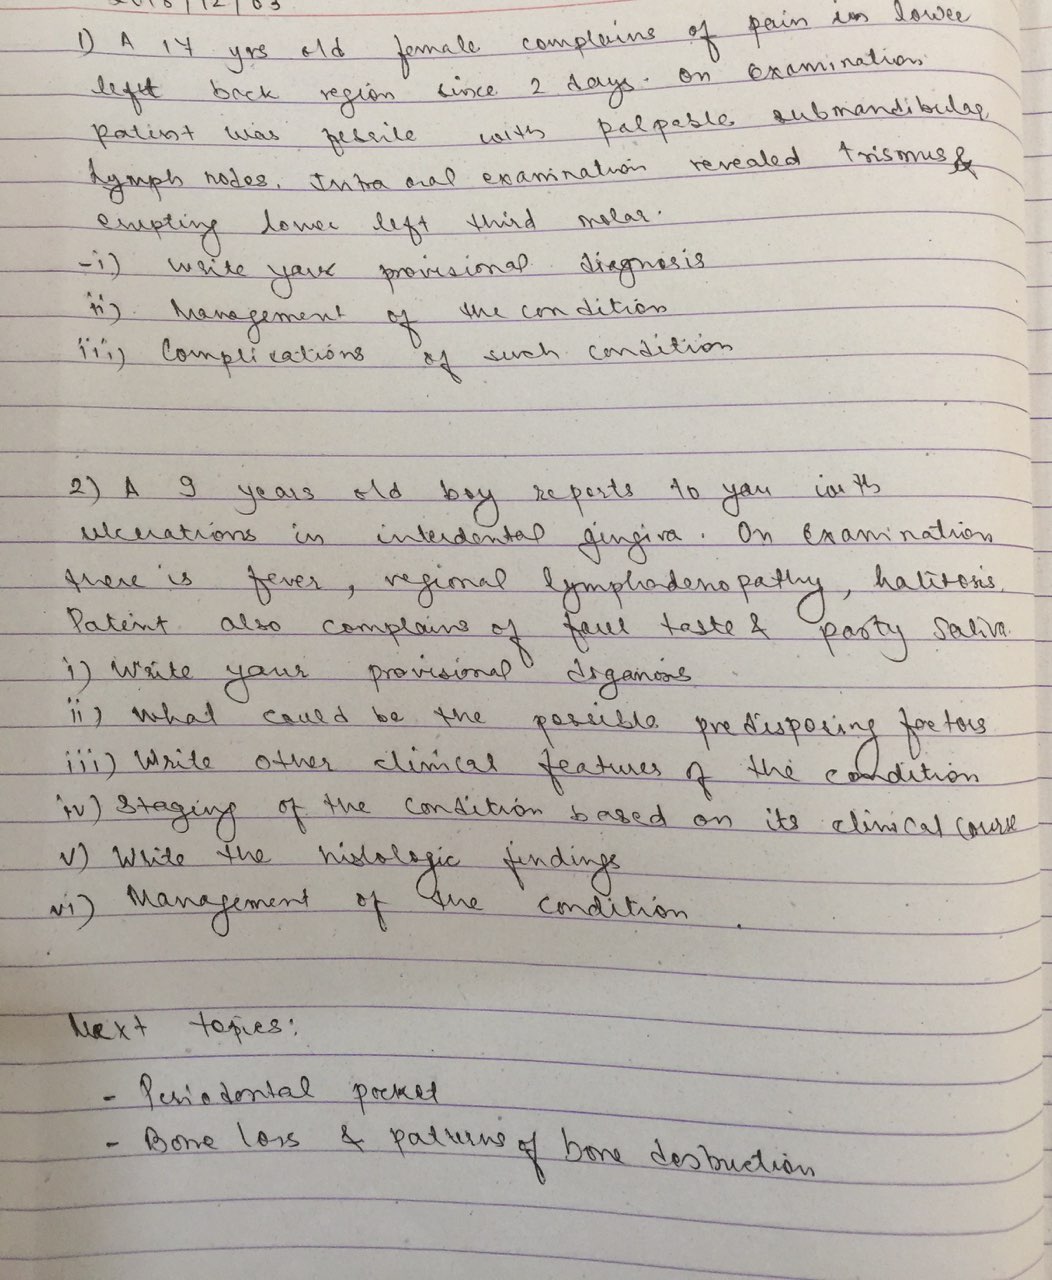 2018/12/03
1) A 17 yrs old female complains of pain in lower
left back region since 2 days. On examination
patient was febrile with palpable submandibular
lymph nodes. Intra oral examination revealed trismus &
erupting lower left third molar.
-i) Write your provisional diagnosis
ii) Management of the condition
iii) Complications of such condition
2) A 9 years old boy reports to you with
ulcerations in interdental gingiva. On examination
there is fever, regional lymphadenopathy, halitosis.
Patient also complains of foul taste & pasty saliva.
i) Write your provisional diganosis
ii) What could be the possible predisposing factors
iii) Write other clinical features of the condition
iv) Staging of the condition based on its clinical course
v) Write the histologic findings
vi) Management of the condition.
Next topics:
- Periodontal pocket
- Bone loss & patterns of bone destruction